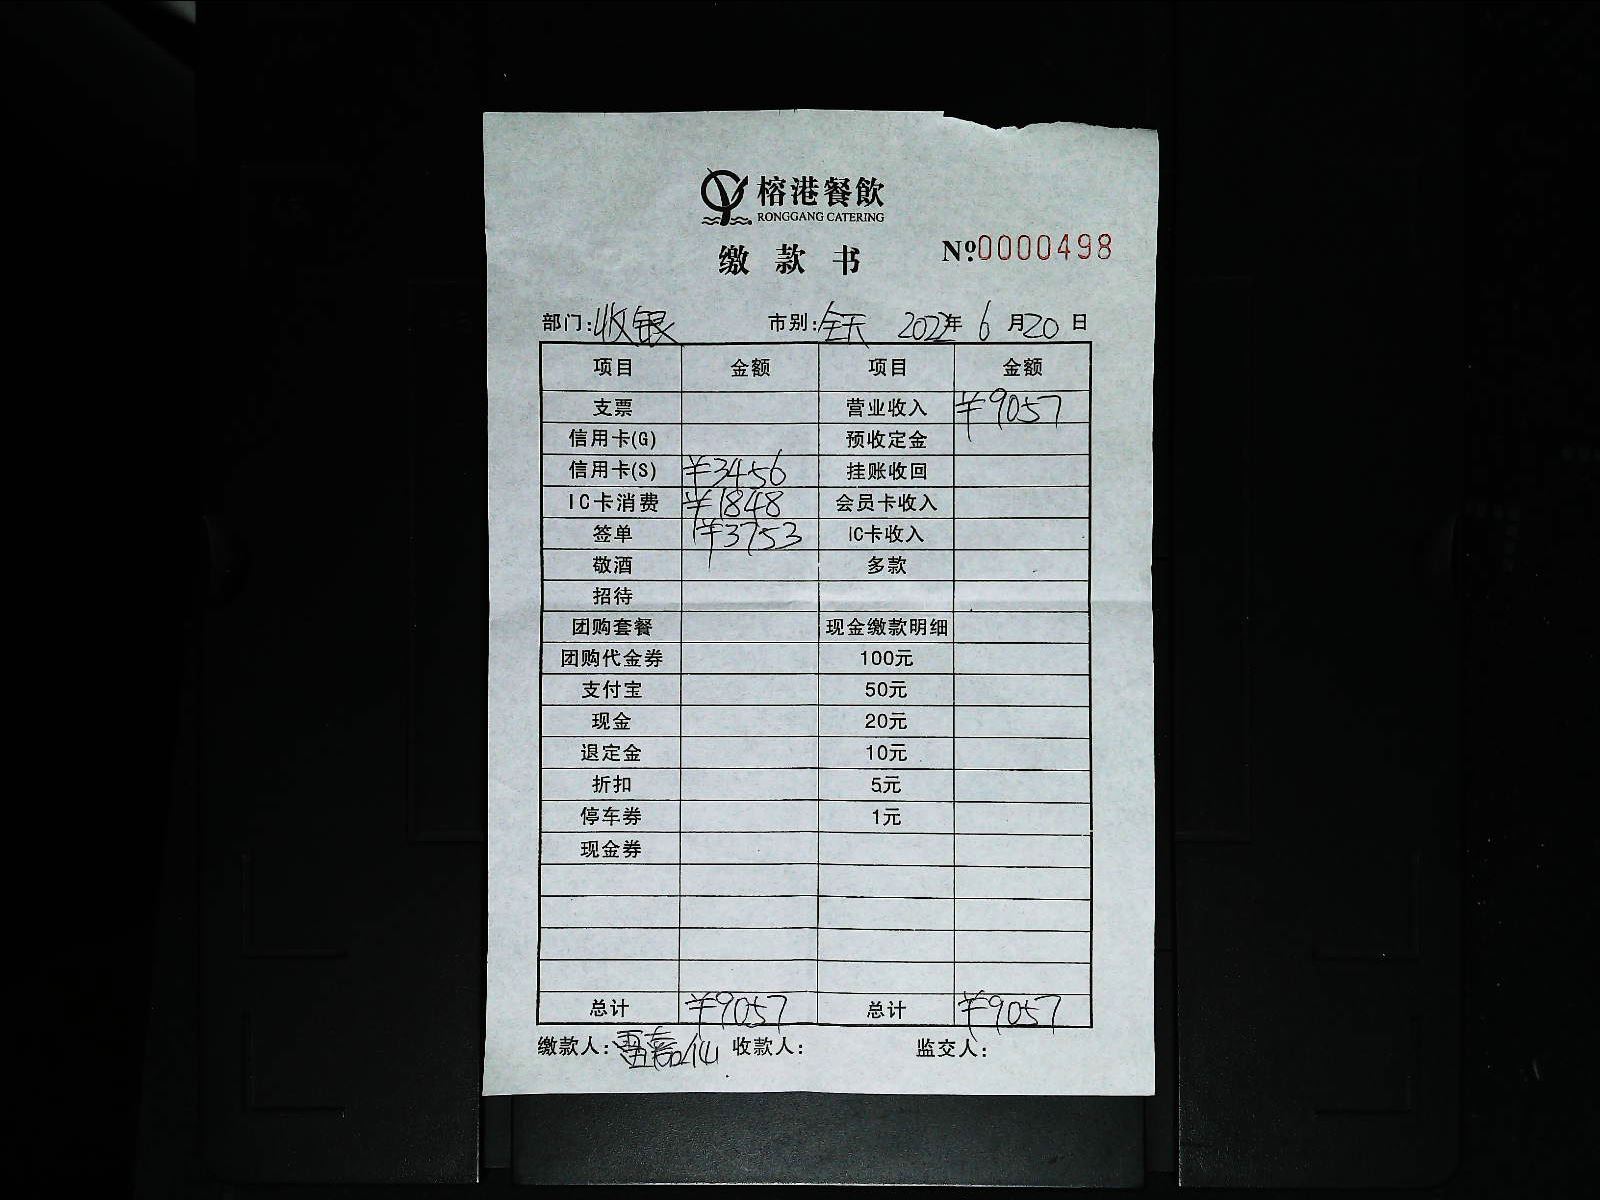 榕港餐飲
RONGGANG CATERING
缴款书 Nº:0000498
部门:收银 市别:全天 2022年6月20日
项目 金额 项目 金额
支票 营业收入 ¥9057
信用卡(G) 预收定金
信用卡(S) ¥3456 挂账收回
IC卡消费 ¥1848 会员卡收入
签单 ¥3753 IC卡收入
敬酒 多款
招待
团购套餐 现金缴款明细
团购代金券 100元
支付宝 50元
现金 20元
退定金 10元
折扣 5元
停车券 1元
现金券
总计 ¥9057 总计 ¥9057
缴款人: 收款人: 监交人: